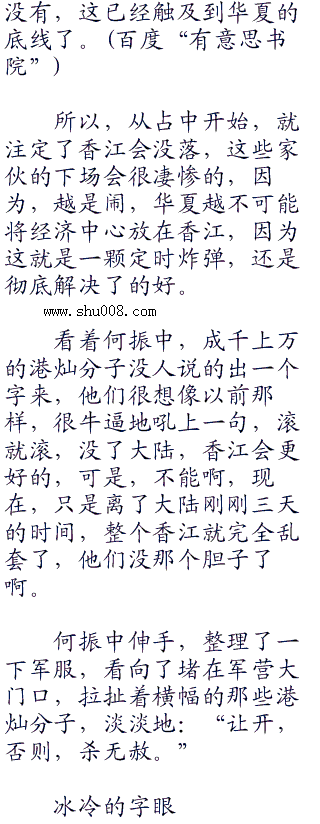 没有，这已经触及到华夏的
底线了。(百度“有意思书
院”)
所以，从占中开始，就
注定了香江会没落，这些家
伙的下场会很凄惨的，因
为，越是闹，华夏越不可能
将经济中心放在香江，因为
这就是一颗定时炸弹，还是
彻底解决了的好。
www.shu008.com
看着何振中，成千上万
的港灿分子没人说的出一个
字来，他们很想像以前那
样，很牛逼地吼上一句，滚
就滚，没了大陆，香江会更
好的，可是，不能啊，现
在，只是离了大陆刚刚三天
的时间，整个香江就完全乱
套了，他们没那个胆子了
啊。
何振中伸手，整理了一
下军服，看向了堵在军营大
门口，拉扯着横幅的那些港
灿分子，淡淡地：“让开，
否则，杀无赦。”
冰冷的字眼